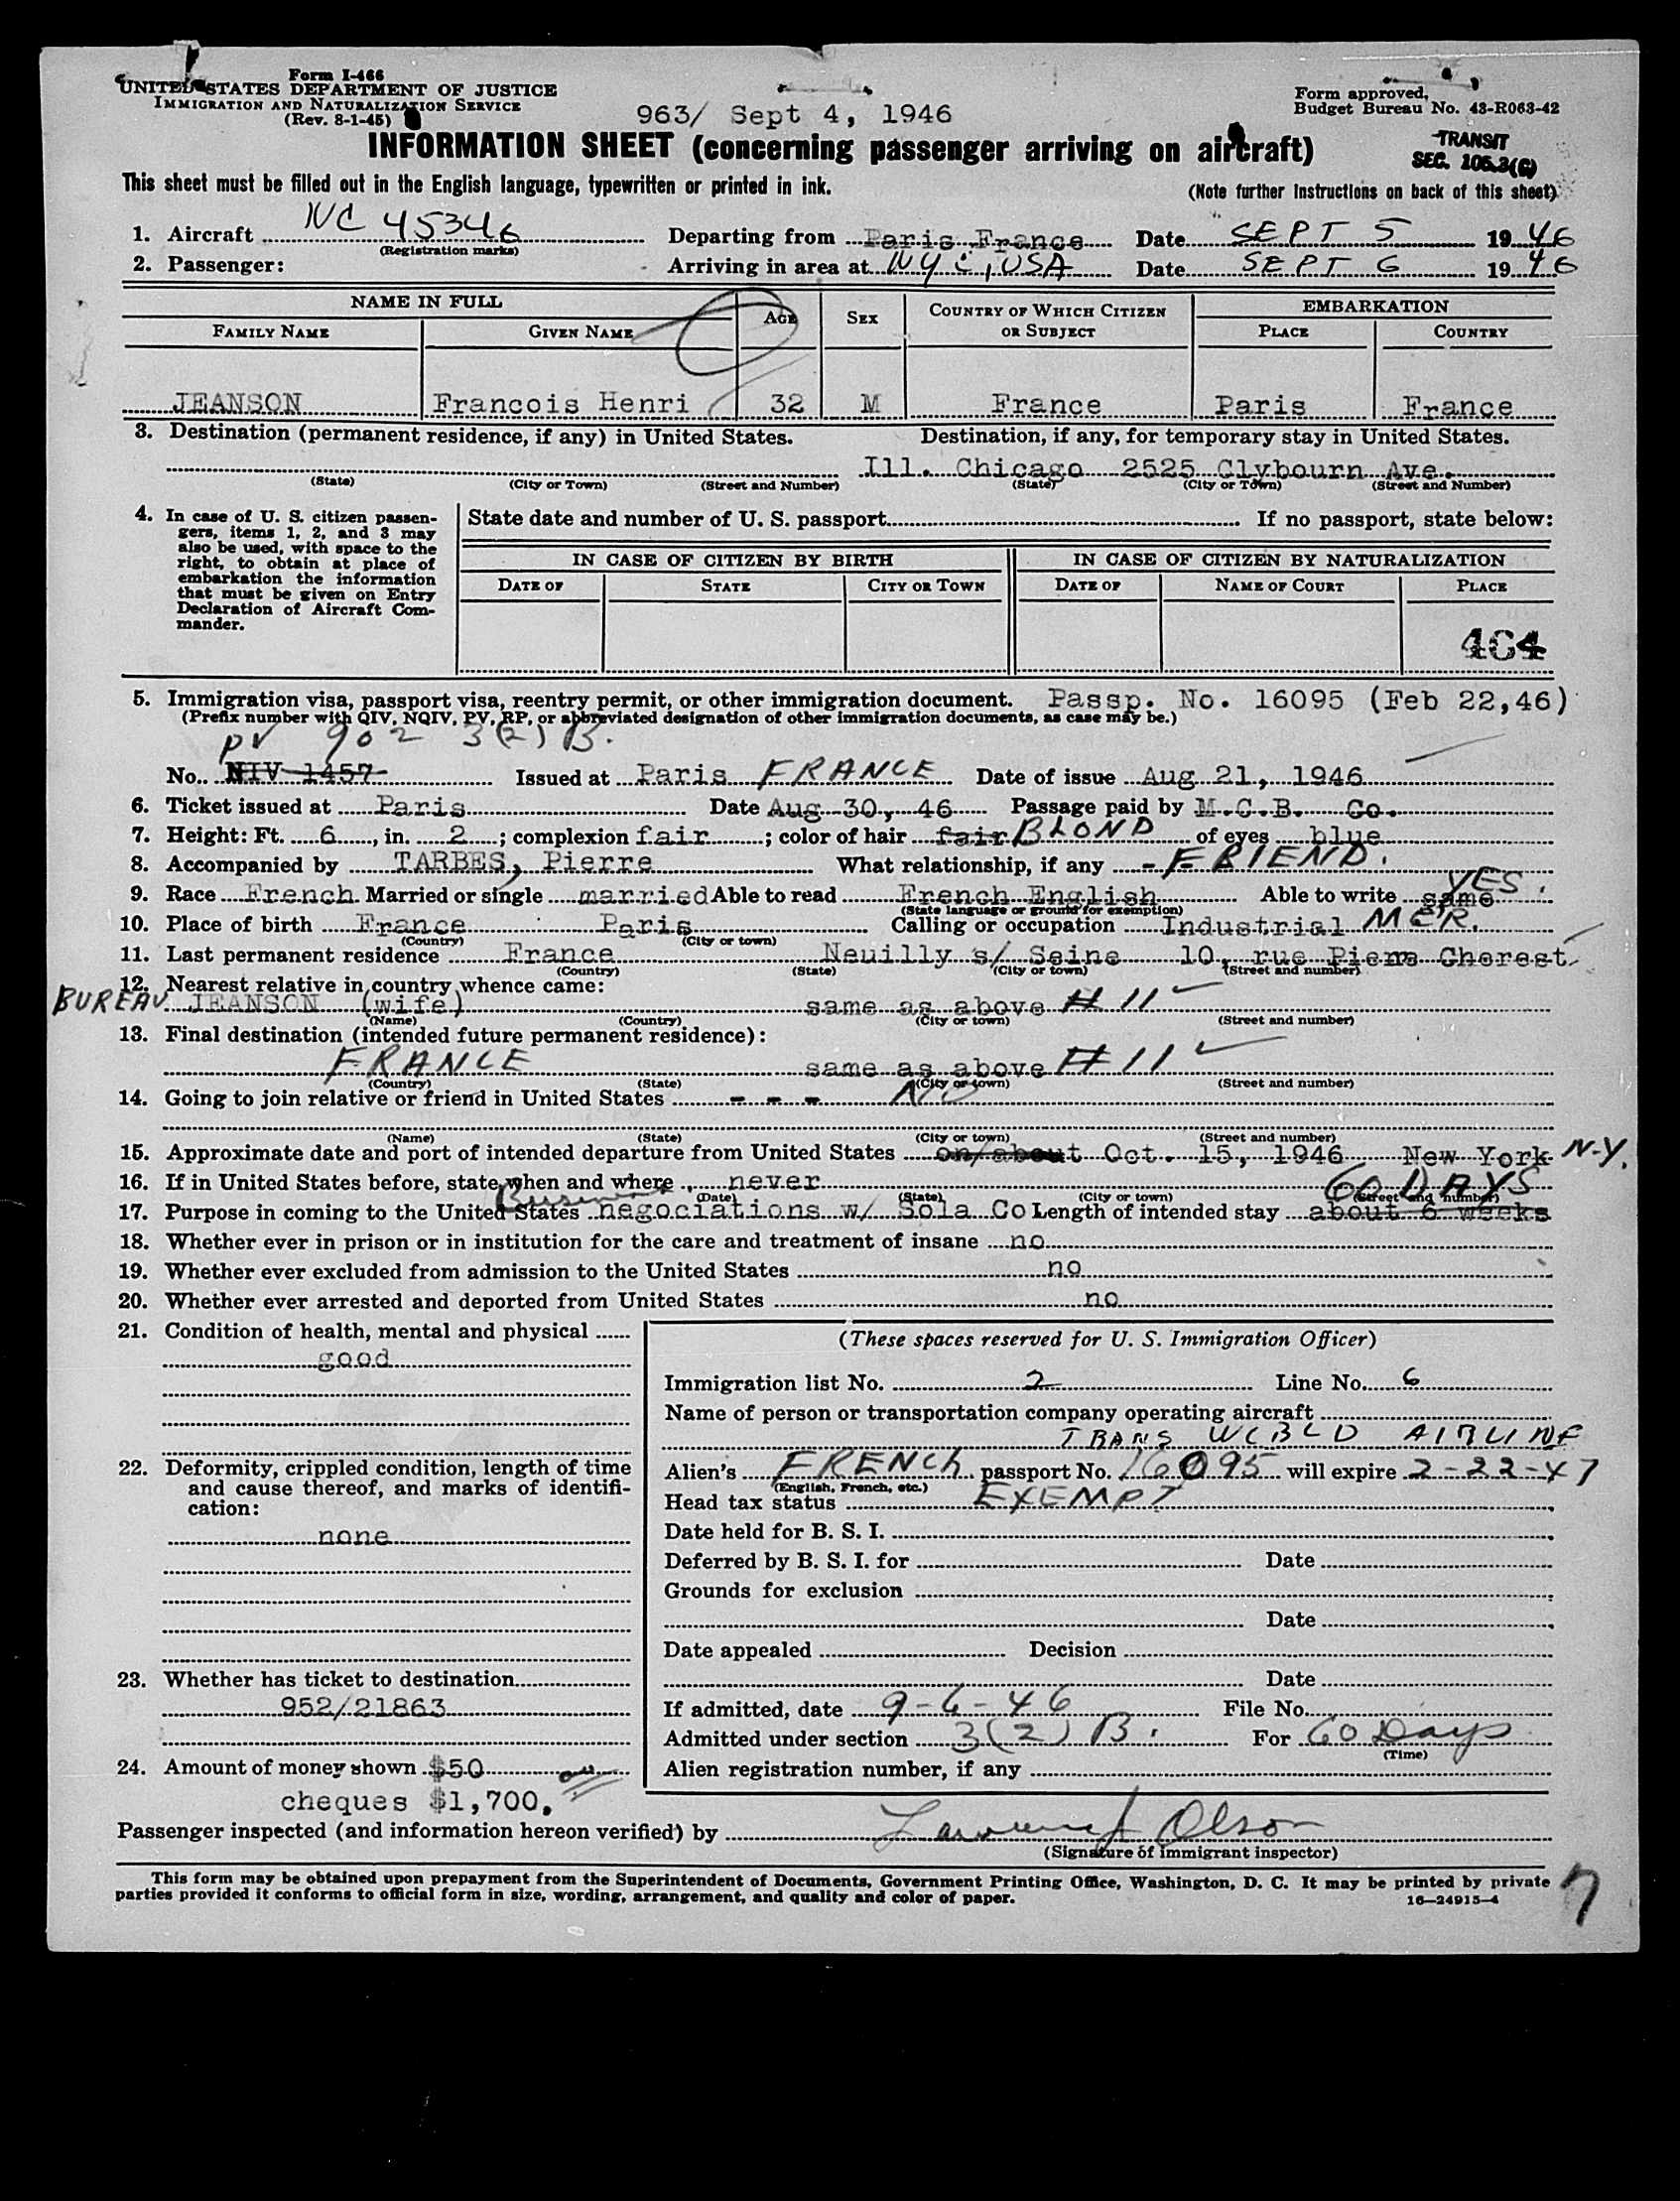 Form I-466
UNITED STATES DEPARTMENT OF JUSTICE
IMMIGRATION AND NATURALIZATION SERVICE
(Rev. 8-1-45)
963/ Sept 4, 1946
Form approved,
Budget Bureau No. 43-R063-42
INFORMATION SHEET (concerning passenger arriving on aircraft)
TRANSIT
SEC. 105.3(C)
This sheet must be filled out in the English language, typewritten or printed in ink.
(Note further instructions on back of this sheet)
1. Aircraft NC 45346 Departing from Paris France Date SEPT 5 1946
(Registration marks)
2. Passenger: Arriving in area at NYC, USA Date SEPT 6 1946
NAME IN FULL AGE SEX COUNTRY OF WHICH CITIZEN OR SUBJECT EMBARKATION
FAMILY NAME GIVEN NAME PLACE COUNTRY
JEANSON Francois Henri 32 M France Paris France
3. Destination (permanent residence, if any) in United States. Destination, if any, for temporary stay in United States.
Ill. Chicago 2525 Clybourn Ave.
(State) (City or Town) (Street and Number) (State) (City or Town) (Street and Number)
4. In case of U. S. citizen passengers, items 1, 2, and 3 may also be used, with space to the right, to obtain at place of embarkation the information that must be given on Entry Declaration of Aircraft Commander.
State date and number of U. S. passport If no passport, state below:
IN CASE OF CITIZEN BY BIRTH IN CASE OF CITIZEN BY NATURALIZATION
DATE OF STATE CITY OR TOWN DATE OF NAME OF COURT PLACE
404
5. Immigration visa, passport visa, reentry permit, or other immigration document. Passp. No. 16095 (Feb 22,46)
(Prefix number with QIV, NQIV, PV, RP, or abbreviated designation of other immigration documents, as case may be.)
PV 902 3(2)B.
No. NIV 1457 Issued at Paris FRANCE Date of issue Aug 21, 1946
6. Ticket issued at Paris Date Aug 30, 46 Passage paid by M.C.B. Co.
7. Height: Ft. 6, in. 2; complexion fair; color of hair fair BLOND of eyes blue
8. Accompanied by TARBES, Pierre What relationship, if any - FRIEND.
9. Race French Married or single married Able to read French English Able to write same YES.
(State language or ground for exemption)
10. Place of birth France Paris Calling or occupation Industrial MGR.
(Country) (City or town)
11. Last permanent residence France Neuilly s/ Seine 10, rue Pierre Cherest
(Country) (State) (City or town) (Street and number)
12. Nearest relative in country whence came:
BUREAU JEANSON (wife) same as above # 11
(Name) (Country) (City or town) (Street and number)
13. Final destination (intended future permanent residence):
FRANCE same as above # 11
(Country) (State) (City or town) (Street and number)
14. Going to join relative or friend in United States - - - NO
(Name) (State) (City or town) (Street and number)
15. Approximate date and port of intended departure from United States on/about Oct. 15, 1946 New York N-Y.
16. If in United States before, state when and where never
(Date) (State) (City or town) (Street and number)
Business 60 DAYS
17. Purpose in coming to the United States negociations w/ Sola Co Length of intended stay about 6 weeks
18. Whether ever in prison or in institution for the care and treatment of insane no
19. Whether ever excluded from admission to the United States no
20. Whether ever arrested and deported from United States no
21. Condition of health, mental and physical
good
22. Deformity, crippled condition, length of time and cause thereof, and marks of identification:
none
23. Whether has ticket to destination
952/21863
24. Amount of money shown $50
cheques $1,700.
(These spaces reserved for U. S. Immigration Officer)
Immigration list No. 2 Line No. 6
Name of person or transportation company operating aircraft
TRANS WORLD AIRLINE
Alien's FRENCH passport No. 16095 will expire 2-22-47
(English, French, etc.)
Head tax status EXEMPT
Date held for B. S. I.
Deferred by B. S. I. for Date
Grounds for exclusion
Date
Date appealed Decision
Date
If admitted, date 9-6-46 File No.
Admitted under section 3(2) B. For 60 Days
(Time)
Alien registration number, if any
Passenger inspected (and information hereon verified) by Lawrence J Olson
(Signature of immigrant inspector)
This form may be obtained upon prepayment from the Superintendent of Documents, Government Printing Office, Washington, D. C. It may be printed by private
parties provided it conforms to official form in size, wording, arrangement, and quality and color of paper.
16—24915-4
7